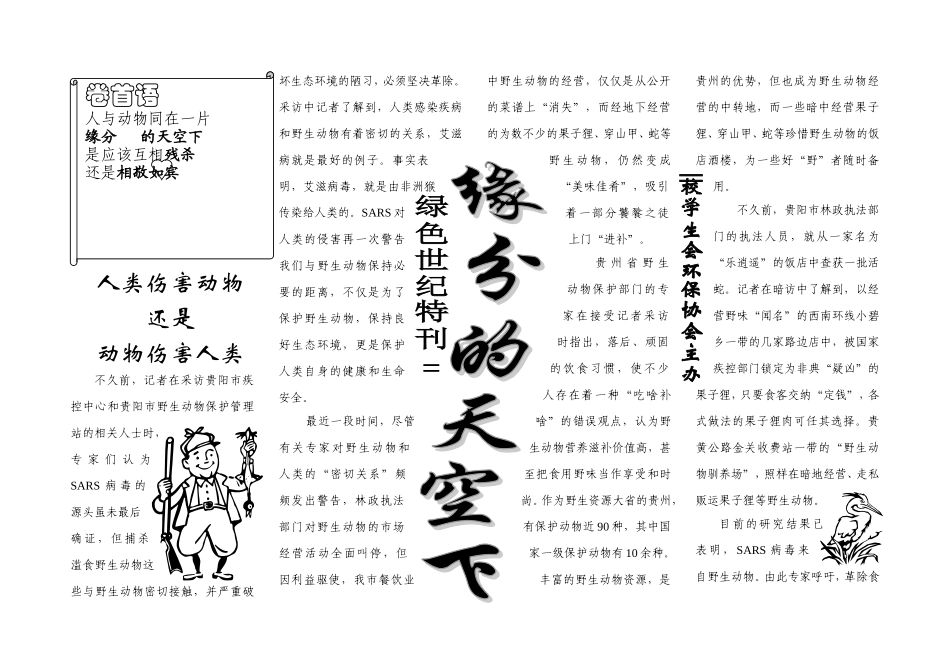 卷首语
人与动物同在一片
缘分 的天空下
是应该互相残杀
还是相敬如宾
人类伤害动物
还是
动物伤害人类
不久前，记者在采访贵阳市疾
控中心和贵阳市野生动物保护管理
站的相关人士时，
专家们认为
SARS 病毒的
源头虽未最后
确证，但捕杀
滥食野生动物这
些与野生动物密切接触，并严重破
坏生态环境的陋习，必须坚决革除。
采访中记者了解到，人类感染疾病
和野生动物有着密切的关系，艾滋
病就是最好的例子。事实表
明，艾滋病毒，就是由非洲猴
传染给人类的。SARS 对
人类的侵害再一次警告
我们与野生动物保持必
要的距离，不仅是为了
保护野生动物，保持良
好生态环境，更是保护
人类自身的健康和生命
安全。
最近一段时间，尽管
有关专家对野生动物和
人类的“密切关系”频
频发出警告，林政执法
部门对野生动物的市场
经营活动全面叫停，但
因利益驱使，我市餐饮业
绿色世纪特刊＝
缘分的天空下
中野生动物的经营，仅仅是从公开
的菜谱上“消失”，而经地下经营
的为数不少的果子狸、穿山甲、蛇等
野生动物，仍然变成
“美味佳肴”，吸引
着一部分饕餮之徒
上门“进补”。
贵州省野生
动物保护部门的专
家在接受记者采访
时指出，落后、顽固
的饮食习惯，使不少
人存在着一种“吃啥补
啥”的错误观点，认为野
生动物营养滋补价值高，甚
至把食用野味当作享受和时
尚。作为野生资源大省的贵州，
有保护动物近 90 种，其中国
家一级保护动物有 10 余种。
丰富的野生动物资源，是
＝校学生会环保协会主办
贵州的优势，但也成为野生动物经
营的中转地，而一些暗中经营果子
狸、穿山甲、蛇等珍惜野生动物的饭
店酒楼，为一些好“野”者随时备
用。
不久前，贵阳市林政执法部
门的执法人员，就从一家名为
“乐逍遥”的饭店中查获一批活
蛇。记者在暗访中了解到，以经
营野味“闻名”的西南环线小碧
乡一带的几家路边店中，被国家
疾控部门锁定为非典“疑凶”的
果子狸，只要食客交纳“定钱”，各
式做法的果子狸肉可任其选择。贵
黄公路金关收费站一带的“野生动
物驯养场”，照样在暗地经营、走私
贩运果子狸等野生动物。
目前的研究结果已
表明，SARS 病毒来
自野生动物。由此专家呼吁，革除食